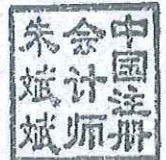 中国注册
会计师
朱斌斌